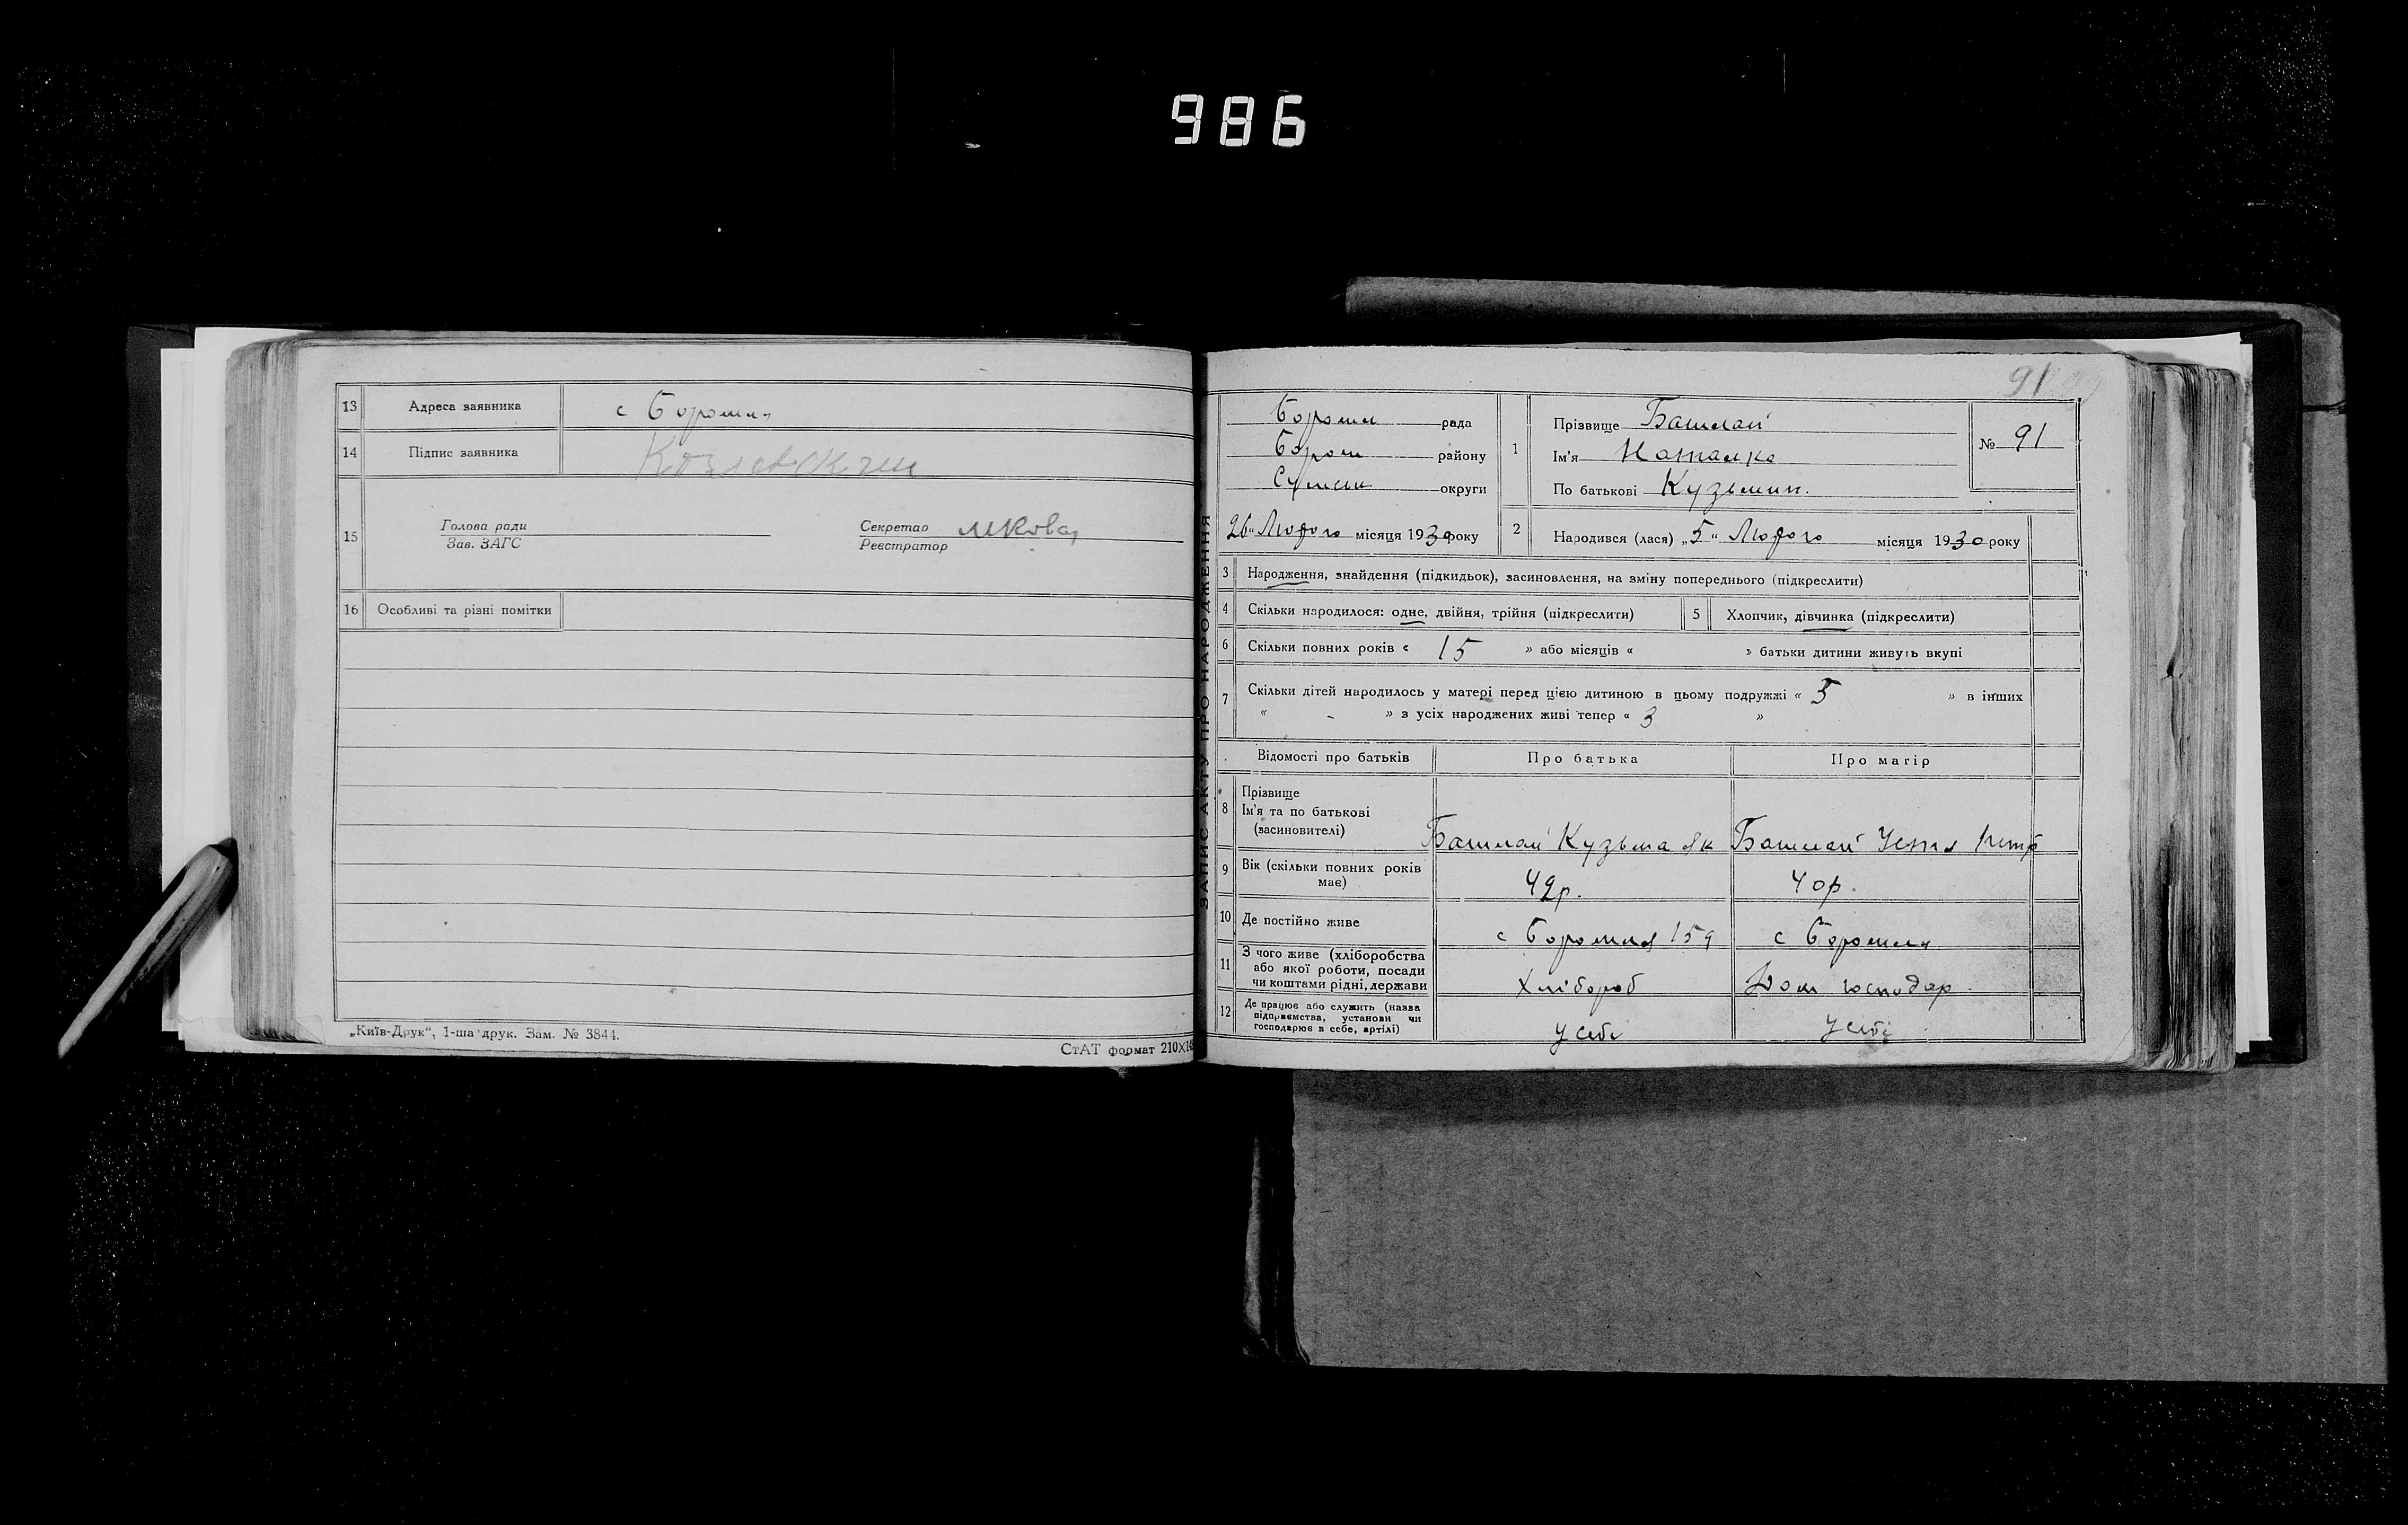 986
13 Адреса заявника с Боромля
14 Підпис заявника
15 Голова ради Секретар
Зав. ЗАГС Реєстратор
16 Особливі та різні помітки
„Київ-Друк“, 1-ша друк. Зам. № 3844.
СтАТ формат 210X14
ЗАПИС АКТУ ПРО НАРОДЖЕННЯ
91
Боромл рада
Бором району
Сумськ округи
26 „ Лютого місяця 1930 року
1 Прізвище Башлай
Ім'я Наталка
По батькові Кузьмин.
№ 91
2 Народився (лася) „5“ Лютого місяця 1930 року
3 Народження, знайдення (підкидьок), засиновлення, на зміну попереднього (підкреслити)
4 Скільки народилося: одне, двійня, трійня (підкреслити) 5 Хлопчик, дівчинка (підкреслити)
6 Скільки повних років « 15 » або місяців « » батьки дитини живуть вкупі
7 Скільки дітей народилось у матері перед цією дитиною в цьому подружжі « 5 » в інших
« - » з усіх народжених живі тепер « 3 »
Відомості про батьків Про батька Про матір
8 Прізвище
Ім'я та по батькові
(засиновителі)
Башлай Кузьма Як Башлай Устя Петр
9 Вік (скільки повних років
має)
42р. 40р.
10 Де постійно живе с Боромля 159 с Боромля
11 З чого живе (хліборобства
або якої роботи, посади
чи коштами рідні, держави
Хлібороб Дом господар.
12 Де працює або служить (назва
підприємства, установи чи
господарює в себе, артілі)
у себе у себе